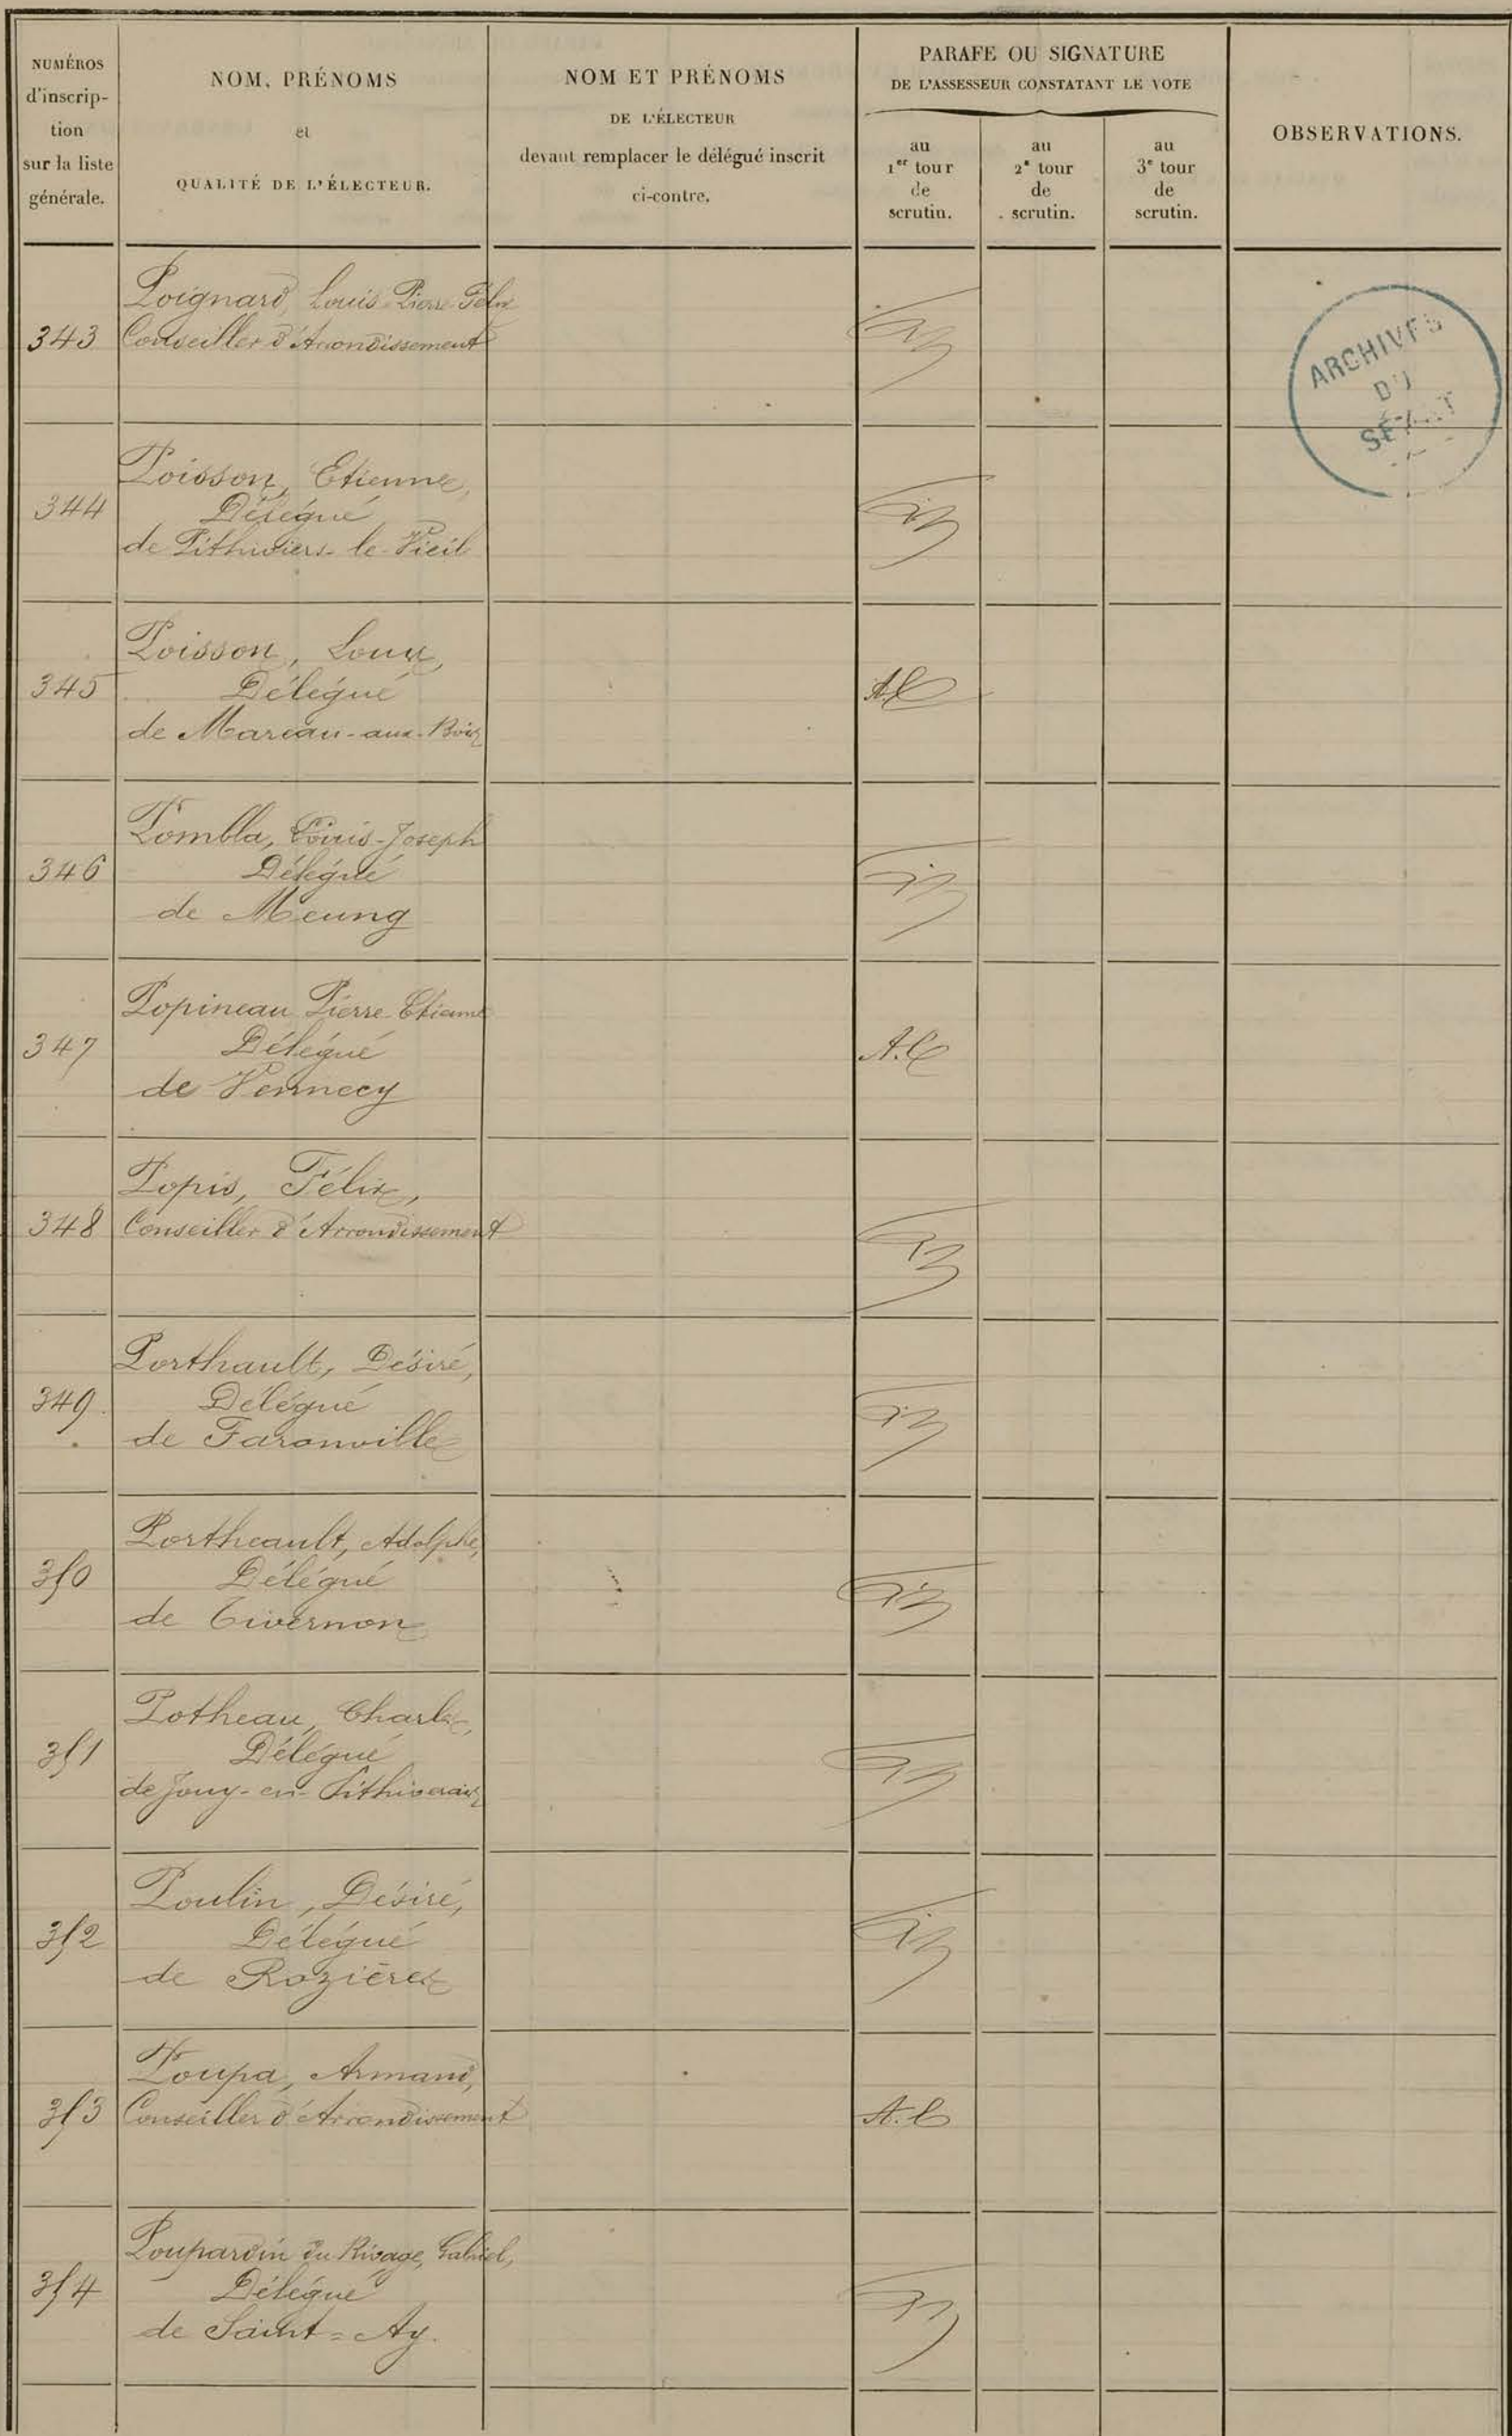 NUMÉROS
d'inscrip-
tion
sur la liste
générale.
NOM, PRÉNOMS
et
QUALITÉ DE L'ÉLECTEUR.
NOM ET PRÉNOMS
DE L'ÉLECTEUR
devant remplacer le délégué inscrit
ci-contre.
PARAFE OU SIGNATURE
DE L'ASSESSEUR CONSTATANT LE VOTE
au
1er tour
de
scrutin.
au
2e tour
de
scrutin.
au
3e tour
de
scrutin.
OBSERVATIONS.
ARCHIVES
DU
SÉNAT
Poignard, Louis Pierre Félix
343 Conseiller d'Arrondissement
Poisson, Etienne,
344 Délégué
de Pithiviers-le-Vieil
Poisson, Louis,
345 Délégué A.C
de Mareau-aux-Bois
Pombla, Louis-Joseph
346 Délégué
de Meung
Popineau Pierre-Etienne
347 Délégué A.C
de Vennecy
Popis, Félix,
348 Conseiller d'Arrondissement
Porthault, Désiré,
349. Délégué
de Faronville
Portheault, Adolphe,
350 Délégué
de Tivernon
Potheau, Charles,
351 Délégué
de Jouy-en-Pithiverais
Poulin, Désiré,
352 Délégué
de Rozières
Poupa, Armand,
353 Conseiller d'Arrondissement A.C
Poupardin du Rivage, Gabriel,
354 Délégué
de Saint=Ay.